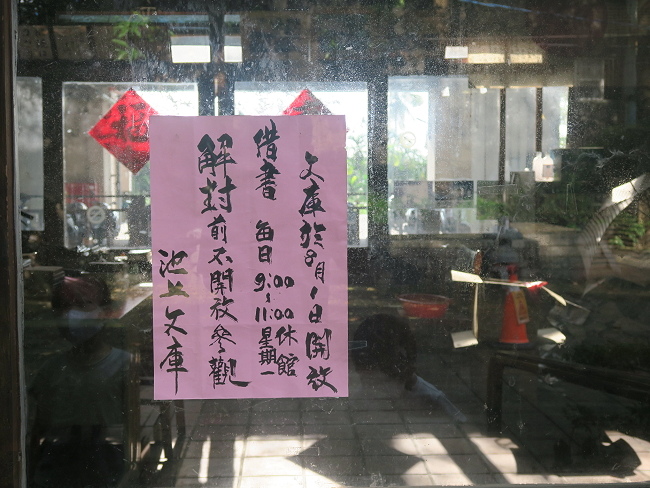 文庫於8月1日開放
借書 每日9:00~11:00 星期一休館
解封前不開放參觀
池上文庫